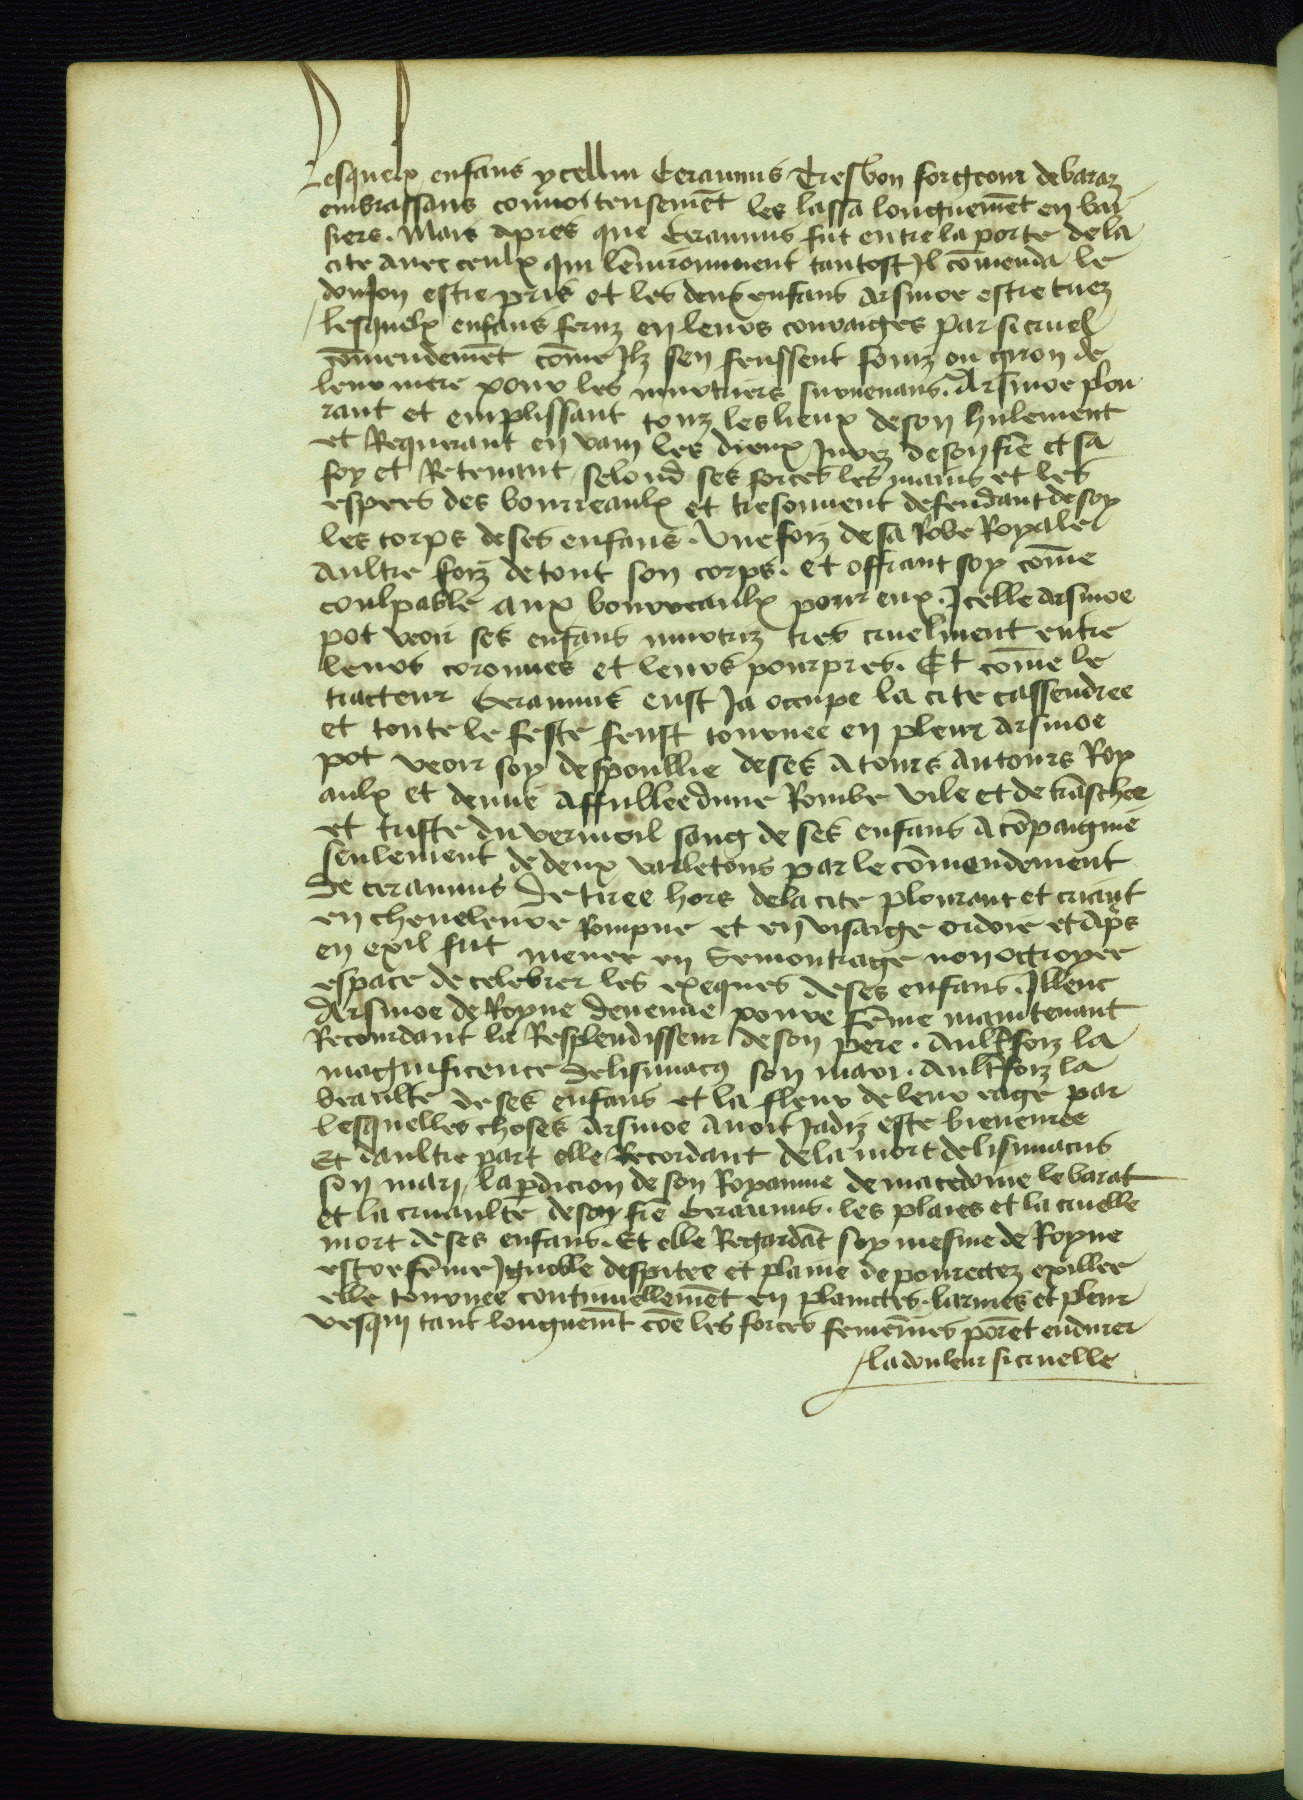 Lesquelx enfans ycellui Ceraunus Tresbon forgeour debaraz
embrassans couvoiteusemēt les lassa longuemēt en bai
siers. Mais apres que Ceraunus fut entre la porte dela
cite avec ceulx qui lēvironnoient tantost Il cōmenda le
donjon estre pris et les deux enfans Arsinoe estre tuez
lesquelx enfans feruz en leurs couraiges par si cruel
cōmendemēt cōme Ilz sen feussent fouiz ou giron de
leur mere pour les murtriers survenans. Arsinoe plou
rant et emplissant touz les lieux deson hulement
et Requerant en vain les dieux Jurez deson frē et sa
foy et Retenant selond ses forces les mains et les
espees des bourreaulx et tresouvent defendant de soy
les corps de ses enfans. Une foiz de sa Robe Royale
aultre foiz de tout son corps. et offrant soy cōme
coulpable aux bourreaulx pour eux. Icelle Arsinoe
pot veoir ses enfans murtriz tres cruelment entre
leurs coronnes et leurs pourpres. Et cōme le
tracteur Ceraunus eust Ja occupe la cite cassendree
et toute le feste feust tournee en pleur Arsinoe
pot veoir soy despoullie deses Atours Autours Roy
aulx et denue affullee dune Rombe vile et detrāschee
et triste du vermeil sang de ses enfans Acōpaignie
seulement de deux varletons par le cōmendement
de ceraunus detiree hors dela cite plourant et criant
en cheveleure Rompue et en visaige ordoie et aps
en exil fut menee en Semontrage non octroyee
espace de celebrer les exeques deses enfans. Illeuc
Arsinoe de Royne devenue povre fēme maintenant
Recourdant la Resplendisseur deson pere. Aultfoiz la
magnificence delisimacus son mari. Aultfoiz la
beaulte de ses enfans et la fleur de leur eage par
lesquelles choses Arsinoe avoit Jadiz este bieneuree
Et daultre part elle Recordant dela mort delisimacus
son mari, la pdicion de son Royaume de macedoine le barat
et la cruaulte deson frē Ceraunus. les plaies et la cruelle
mort deses enfans. Et elle Regardāt soy mesme de Royne
estre fēme Ignoble despitee et plaine de pouretez exillee
elle tournee continuellemēt en plainctes. larmes et pleur
vesqui tant longuemt cōe les forces femenines porēt endurer
la douleur si cruelle